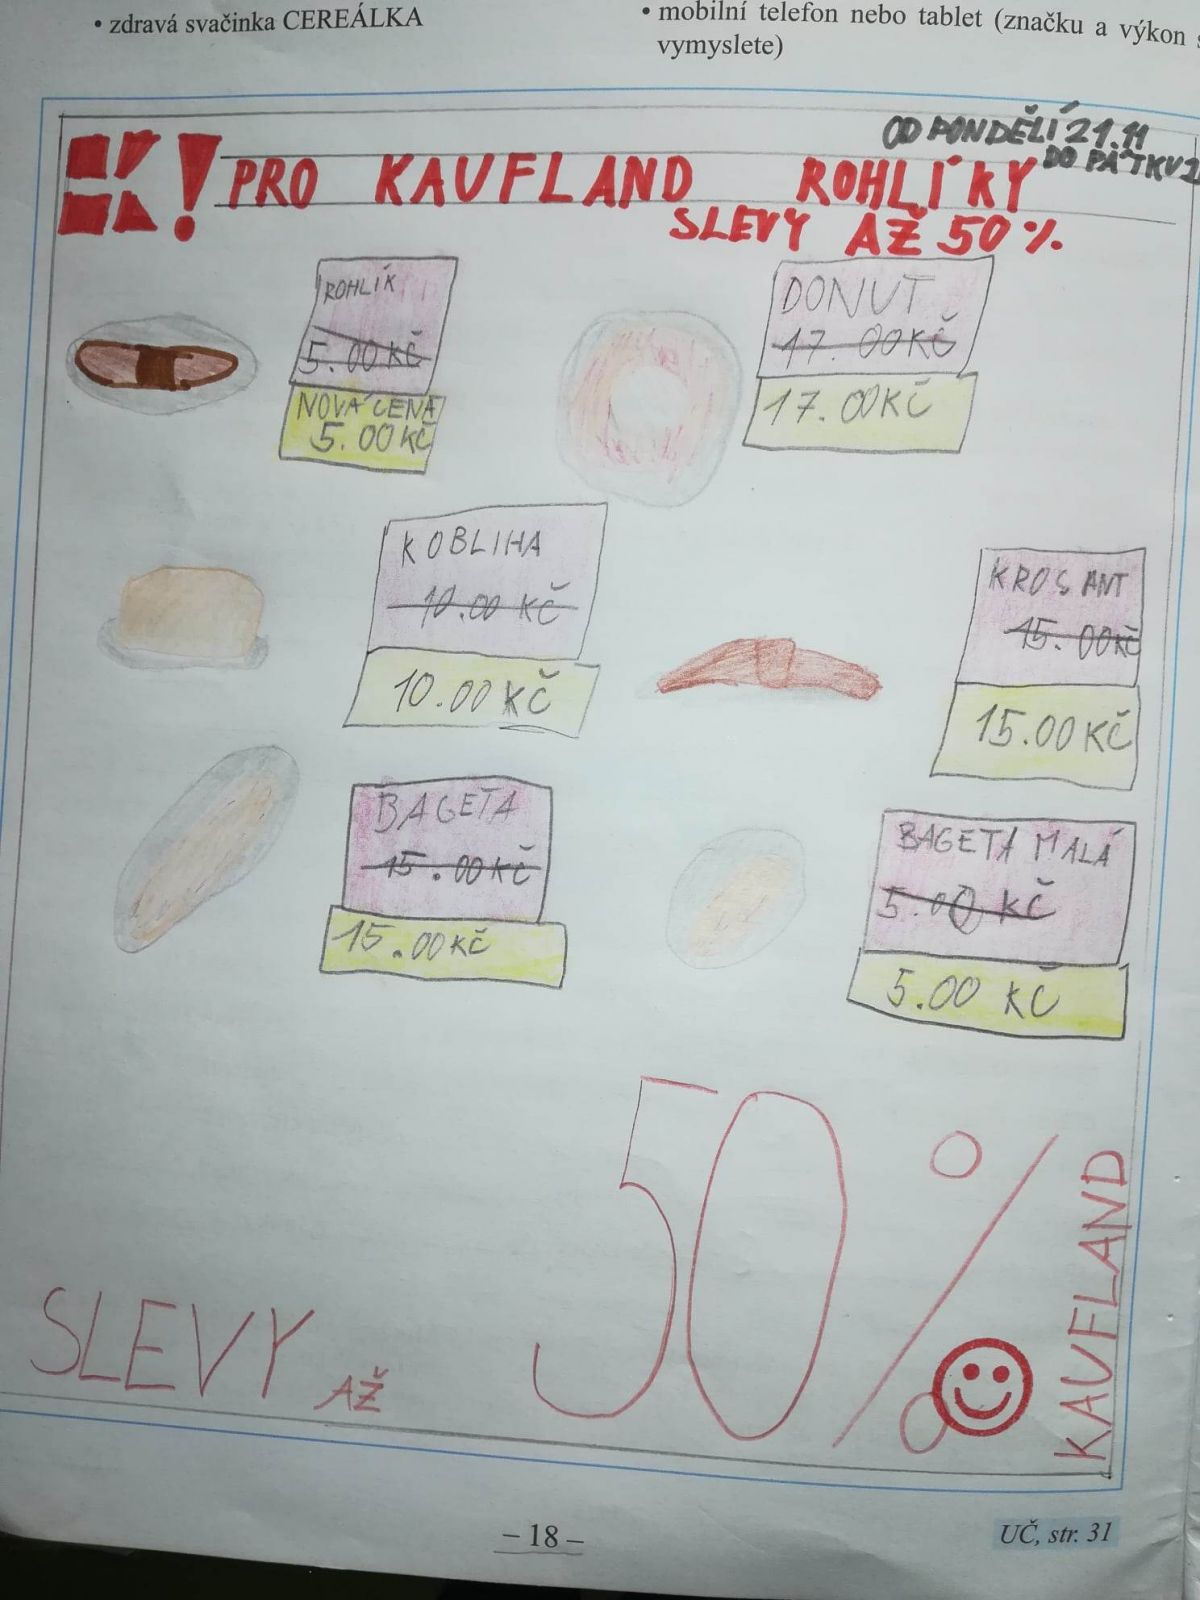 • zdravá svačinka CEREÁLKA
• mobilní telefon nebo tablet (značku a výkon
vymyslete)
OD PONDĚLÍ 21.11
DO PÁTKU
K! PRO KAUFLAND ROHLÍKY
SLEVY AŽ 50%
ROHLÍK
5.00 KČ
NOVÁ CENA
5.00 KČ
DONUT
17.00KČ
17.00KČ
KOBLIHA
10.00 KČ
10.00 KČ
KROSANT
15.00KČ
15.00KČ
BAGETA
15.00KČ
15.00KČ
BAGETA MALÁ
5.00 KČ
5.00 KČ
SLEVY AŽ 50%
KAUFLAND
– 18 –
UČ, str. 31